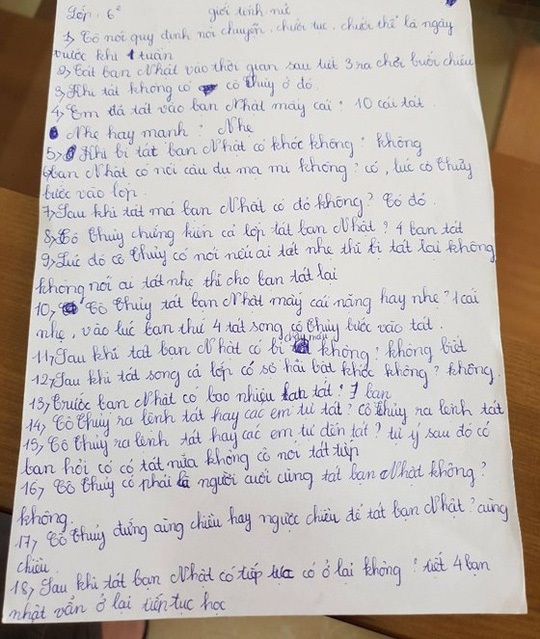 Lớp: 6² giới tính nữ
1, Cô nói quy định nói chuyện, chửi tục, chửi thề là ngày
trước khi 1 tuần
2, Tát bạn Nhật vào thời gian sau tiết 3 ra chơi buổi chiều
3, Khi tát không có cô Thủy ở đó.
4, Em đã tát vào bạn Nhật mấy cái? 10 cái tát
Nhẹ hay mạnh? Nhẹ
5, Khi bị tát bạn Nhật có khóc không? không
6, bạn Nhật có nói câu du ma mi không? có, lúc cô Thủy
bước vào lớp
7, Sau khi tát má bạn Nhật có đỏ không? Có đỏ
8, Cô Thủy chứng kiến cả lớp tát bạn Nhật? 4 bạn tát
9, Lúc đó cô Thủy có nói nếu ai tát nhẹ thì bị tát lại không
không nói ai tát nhẹ thì cho bạn tát lại
10, Cô Thủy tát bạn Nhật mấy cái nặng hay nhẹ? 1 cái
nhẹ, vào lúc bạn thứ 4 tát song cô Thủy bước vào tát.
11, Sau khi tát bạn Nhật có bị chảy máu không? không biết
12, Sau khi tát song cả lớp có sợ hãi bật khóc không? không.
13, Trước bạn Nhật có bao nhiêu bạn tát? 7 bạn
14, Cô Thủy ra lệnh tát hay các em tự tát? Cô Thủy ra lệnh tát
15, Cô Thủy ra lệnh tát hay các em tự đến tát? tự ý sau đó có
bạn hỏi cô có tát nữa không cô nói tát tiếp
16, Cô Thủy có phải là người cuối cùng tát bạn Nhật không?
không.
17, Cô Thủy đứng cùng chiều hay ngược chiều để tát bạn Nhật? cùng
chiều
18, Sau khi tát bạn Nhật có tiếp tục có ở lại không? tiết 4 bạn
nhật vẫn ở lại tiếp tục học